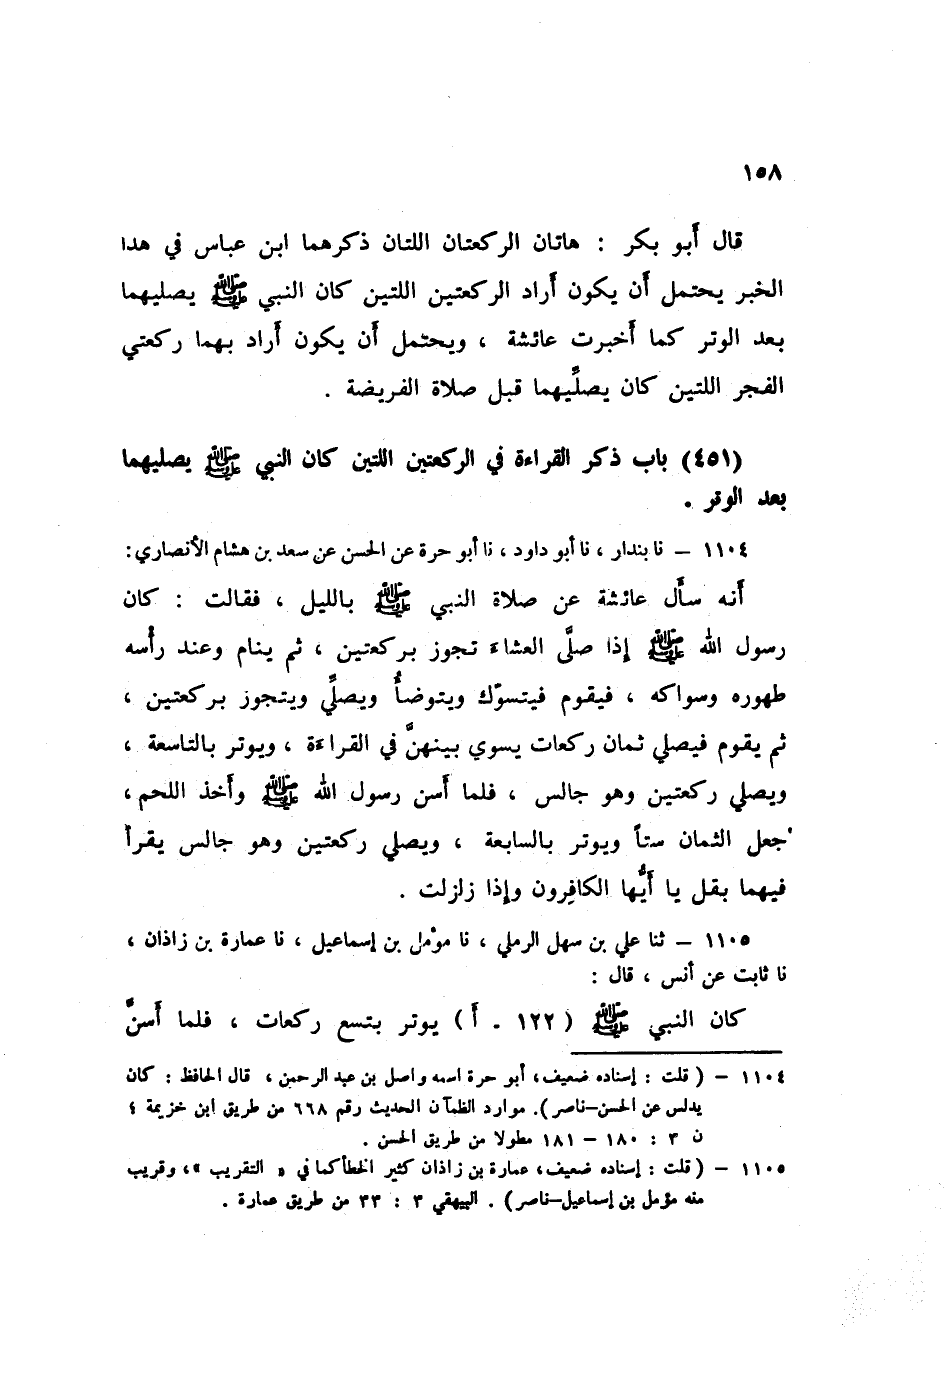 ١٥٨
قال أبو بكر : هاتان الركعتان اللتان ذكرهما ابن عباس في هذا
الخبر يحتمل أن يكون أراد الركعتين اللتين كان النبي ﷺ يصليهما
بعد الوتر كما أخبرت عائشة ، ويحتمل أن يكون أراد بهما ركعتي
الفجر اللتين كان يصلّيهما قبل صلاة الفريضة .
(٤٥١) باب ذكر القراءة في الركعتين اللتين كان النبي ﷺ يصليهما
بعد الوتر .
١١٠٤ – نا بندار ، نا أبو داود ، نا أبو حرة عن الحسن عن سعد بن هشام الأنصاري :
أنه سأل عائشة عن صلاة النبي ﷺ بالليل ، فقالت : كان
رسول الله ﷺ إذا صلَّى العشاء تجوز بركعتين ، ثم ينام وعند رأسه
طهوره وسواكه ، فيقوم فيتسوّك ويتوضأُ ويصلِّي ويتجوز بركعتين ،
ثم يقوم فيصلي ثمان ركعات يسوي بينهنَّ في القراءة ، ويوتر بالتاسعة ،
ويصلي ركعتين وهو جالس ، فلما أسن رسول الله ﷺ وأخذ اللحم ،
جعل الثمان ستاً ويوتر بالسابعة ، ويصلي ركعتين وهو جالس يقرأ
فيهما بقل يا أيُّها الكافِرون وإذا زلزلت .
١١٠٥ – ثنا علي بن سهل الرملي ، نا مؤمل بن إسماعيل ، نا عمارة بن زاذان ،
نا ثابت عن أنس ، قال :
كان النبي ﷺ ( ١٢٢ - أ ) يوتر بتسع ركعات ، فلما أسنَّ
١١٠٤ – ( قلت : إسناده ضعيف ، أبو حرة اسمه واصل بن عبد الرحمن ، قال الحافظ : كان
يدلس عن الحسن–ناصر ). موارد الظمآن الحديث رقم ٦٦٨ من طريق ابن خزيمة ؛
ن ٣ : ١٨٠ – ١٨١ مطولا من طريق الحسن .
١١٠٥ – ( قلت : إسناده ضعيف ، عمارة بن زاذان كثير الخطأ كما في « التقريب » ، وقريب
منه مؤمل بن إسماعيل–ناصر ) . البيهقي ٣ : ٣٣ من طريق عمارة .